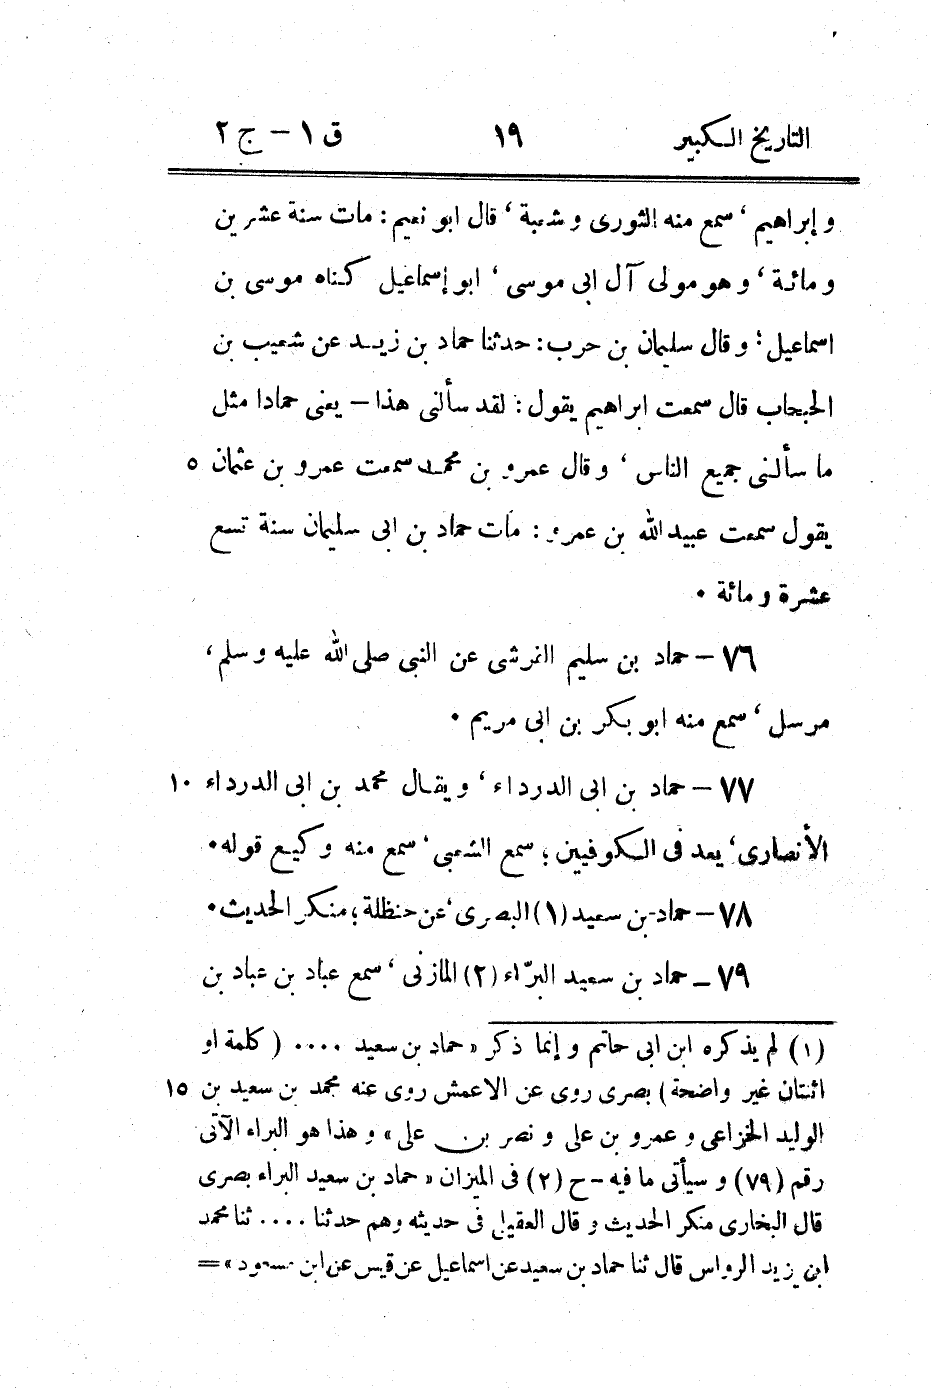 التاريخ الكبير ١٩ ق ١ – ج ٢
و إبراهيم ، سمع منه الثورى و شعبة ، قال ابو نعيم : مات سنة عشرين
و مائة ، و هو مولى آل ابى موسى ، ابو إسماعيل كناه موسى بن
اسماعيل ؛ و قال سليمان بن حرب : حدثنا حماد بن زيد عن شعيب بن
الحبحاب قال سمعت ابراهيم يقول : لقد سألنى هذا – يعنى حمادا مثل
ما سألنى جميع الناس ، و قال عمرو بن محمد سمعت عمرو بن عثمان ٥
يقول سمعت عبيد الله بن عمرو : مات حماد بن ابى سليمان سنة تسع
عشرة و مائة .
٧٦ – حماد بن سليم القرشى عن النبى صلى الله عليه و سلم ،
مرسل ، سمع منه ابو بكر بن ابى مريم .
٧٧ – حماد بن ابى الدرداء ، و يقال محمد بن ابى الدرداء ١٠
الأنصارى ، يعد فى الكوفيين ؛ سمع الشعبى ، سمع منه وكيع قوله .
٧٨ – حماد بن سعيد (١) البصرى ، عن حنظلة ؛ منكر الحديث .
٧٩ – حماد بن سعيد البرّاء (٢) المازنى ، سمع عباد بن عباد بن
(١) لم يذكره ابن ابى حاتم و إنما ذكر « حماد بن سعيد .... ( كلمة او
اثنتان غير واضحة ) بصرى روى عن الاعمش روى عنه محمد بن سعيد بن ١٥
الوليد الخزاعى و عمرو بن على و نصر بن على » و هذا هو البراء الآتى
رقم (٧٩) و سيأتى ما فيه – ح (٢) فى الميزان « حماد بن سعيد البراء بصرى
قال البخارى منكر الحديث و قال العقيلى فى حديثه وهم حدثنا .... ثنا محمد
ابن يزيد الرواس قال ثنا حماد بن سعيد عن اسماعيل عن قيس عن ابن مسعود » =